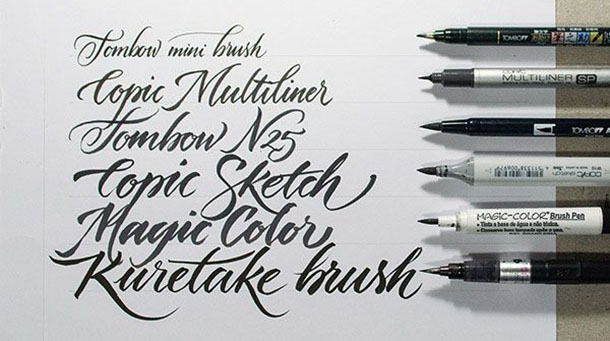 Tombow mini brush
Copic Multiliner
Tombow N25
Copic Sketch
Magic Color
Kuretake brush
TOMBOW
COPIC MULTILINER SP
TOMBOW
COPIC sketch
MAGIC-COLOR Brush Pen
• Tinta a base de água e não tóxica.